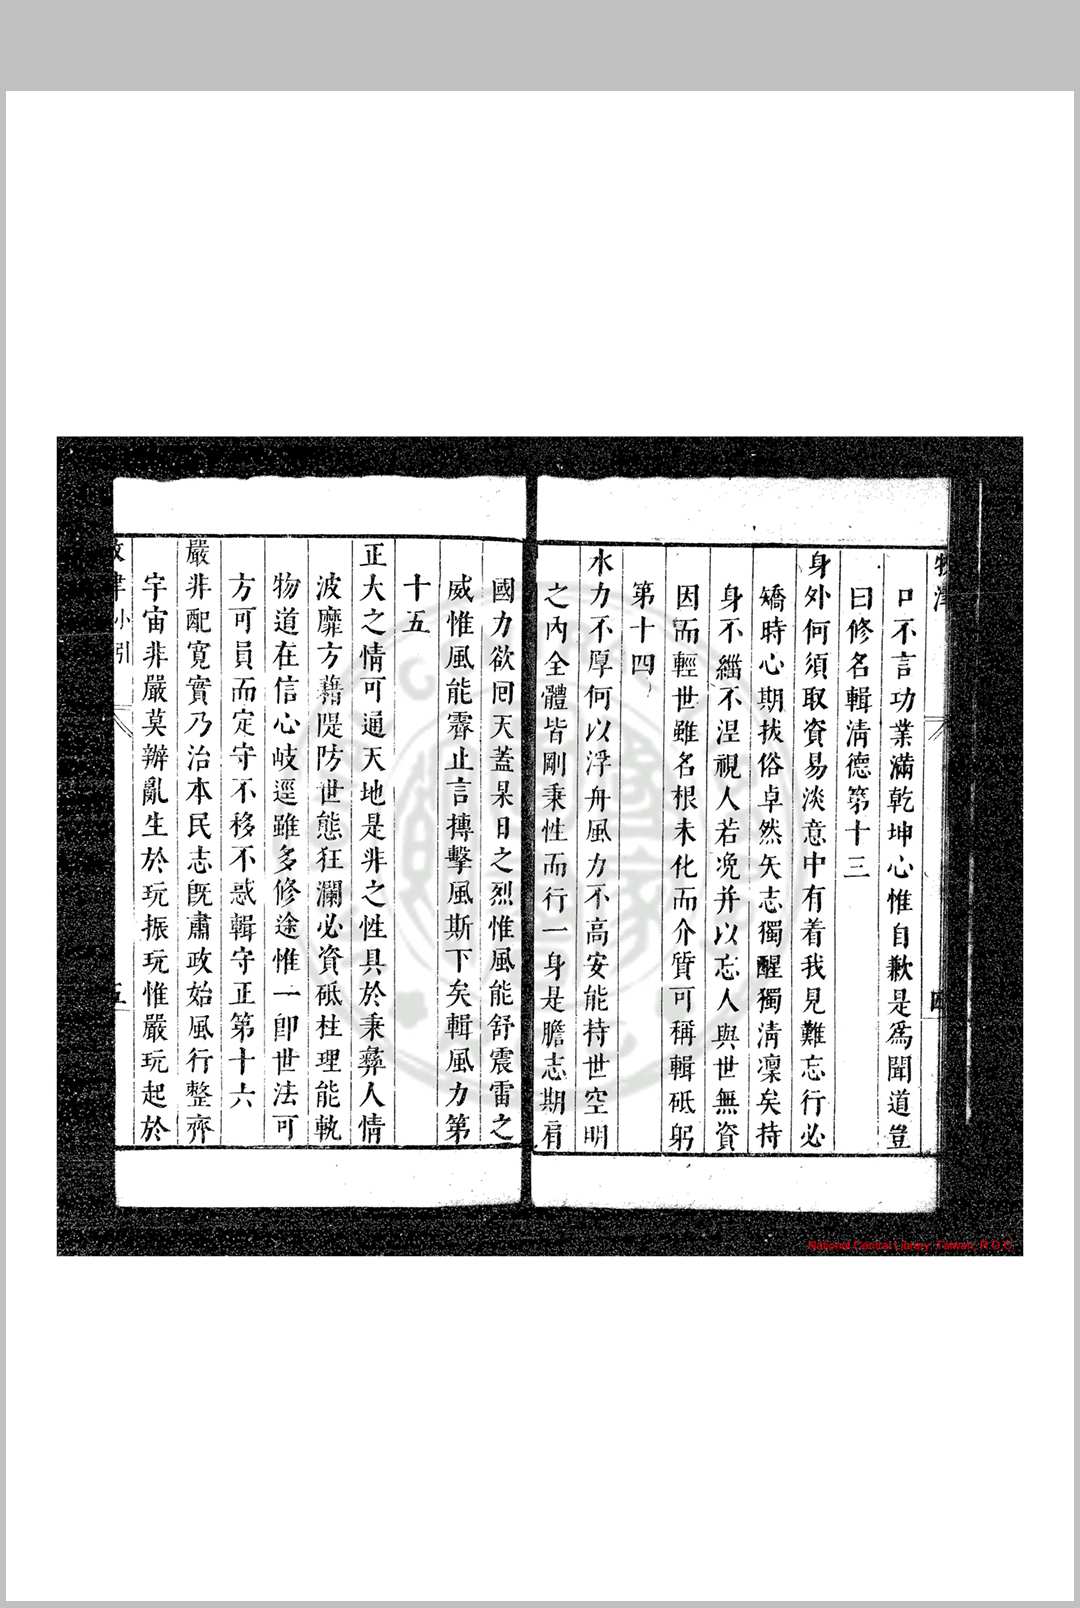 口不言功業滿乾坤心惟自歉是爲聞道豈
曰修名輯清德第十三
身外何須取資易淡意中有着我見難忘行必
矯時心期拔俗卓然矢志獨醒獨清凜矣持
身不緇不涅視人若浼并以忘人與世無資
因而輕世雖名根未化而介質可稱輯砥躬
第十四
水力不厚何以浮舟風力不高安能持世空明
之內全體皆剛秉性而行一身是膽志期肩
國力欲囘天蓋杲日之烈惟風能舒震雷之
威惟風能霽止言摶擊風斯下矣輯風力第
十五
正大之情可通天地是非之性具於秉彝人情
波靡方藉隄防世態狂瀾必資砥柱理能軌
物道在信心岐逕雖多修途惟一卽世法可
方可員而定守不移不惑輯守正第十六
嚴非配寛實乃治本民志旣肅政始風行整齊
宇宙非嚴莫辦亂生於玩振玩惟嚴玩起於
小引
五
National Central Library, Taiwan, R.O.C.